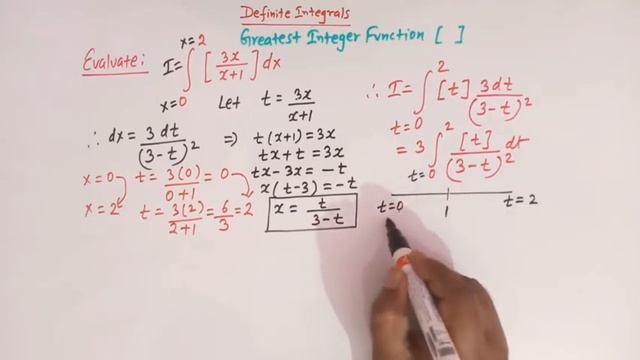 Definite Integrals
Greatest Integer Function [ ]
Evaluate: I = ∫_{x=0}^{x=2} [3x/(x+1)] dx
Let t = 3x/(x+1)
∴ dx = 3 dt/(3-t)² ⇒ t(x+1) = 3x
tx + t = 3x
tx - 3x = -t
x(t-3) = -t
x = t/(3-t)
x = 0 t = 3(0)/(0+1) = 0
x = 2 t = 3(2)/(2+1) = 6/3 = 2
∴ I = ∫_{t=0}^{2} [t] 3dt/(3-t)²
= 3 ∫_{t=0}^{2} [t]/(3-t)² dt
t=0 1 t=2